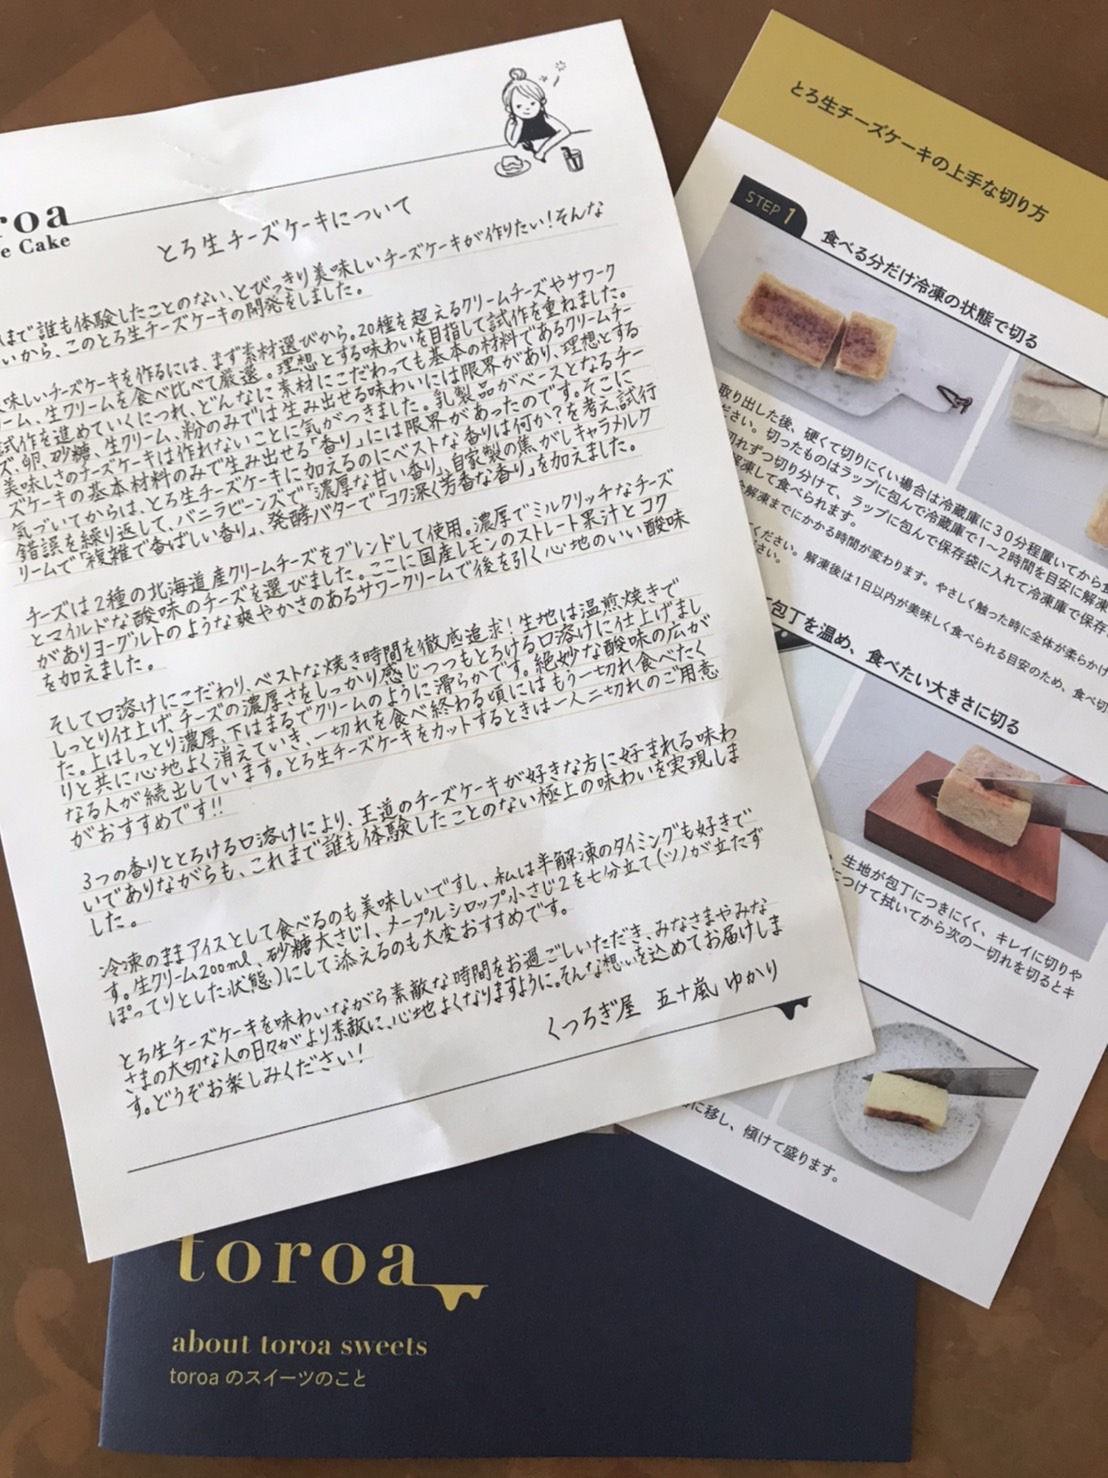 roa
e Cake
とろ生チーズケーキについて
まで誰も体験したことのない、とびっきり美味しいチーズケーキが作りたい！そんな
いから、このとろ生チーズケーキの開発をしました。
味しいチーズケーキを作るには、まず素材選びから。20種を超えるクリームチーズやサワーク
ーム、生クリームを食べ比べて厳選。理想とする味わいを目指して試作を重ねました。
試作を進めていくにつれ、どんなに素材にこだわっても基本の材料であるクリームチー
ズ、卵、砂糖、生クリーム、粉のみでは生み出せる味わいには限界があり、理想とする
美味しさのチーズケーキは作れないことに気がつきました。乳製品がベースとなるチー
ズケーキの基本材料のみで生み出せる「香り」には限界があったのです。そこに
気づいてからは、とろ生チーズケーキに加えるのにベストな香りは何か？を考え、試行
錯誤を繰り返して、バニラビーンズで「濃厚な甘い香り」、自家製の焦がしキャラメルク
リームで「複雑で香ばしい香り」、発酵バターで「コク深く芳香な香り」を加えました。
チーズは2種の北海道産クリームチーズをブレンドして使用。濃厚でミルクリッチなチーズ
とマイルドな酸味のチーズを選びました。ここに国産レモンのストレート果汁とコク
がありヨーグルトのような爽やかさのあるサワークリームで後を引く心地のいい酸味
を加えました。
そして口溶けにこだわり、ベストな焼き時間を徹底追求！生地は温煎焼きで
しっとり仕上げ、チーズの濃厚さをしっかり感じつつもとろける口溶けに仕上げまし
た。上はしっとり濃厚、下はまるでクリームのように滑らかです。絶妙な酸味の広が
りと共に心地よく消えていき、一切れを食べ終わる頃にはもう一切れ食べたく
なる人が続出しています。とろ生チーズケーキをカットするときは一人二切れのご用意
がおすすめです!!
3つの香りととろける口溶けにより、王道のチーズケーキが好きな方に好まれる味わ
いでありながらも、これまで誰も体験したことのない極上の味わいを実現しま
した。
冷凍のままアイスとして食べるのも美味しいですし、私は半解凍のタイミングも好きで
す。生クリーム200ml、砂糖大さじ1、メープルシロップ小さじ2を七分立て(ツノが立たず
ぽってりとした状態)にして添えるのも大変おすすめです。
とろ生チーズケーキを味わいながら素敵な時間をお過ごしいただき、みなさまやみな
さまの大切な人の日々がより素敵に、心地よくなりますように。そんな想いを込めてお届けしま
す。どうぞお楽しみください！
くつろぎ屋 五十嵐 ゆかり
とろ生チーズケーキの上手な切り方
STEP 1
食べる分だけ冷凍の状態で切る
取り出した後、硬くて切りにくい場合は冷蔵庫に30分程置いてから食
ださい。切ったものはラップに包んで冷蔵庫で1〜2時間を目安に解凍
切れずつ切り分けて、ラップに包んで保存袋に入れて冷凍庫で保存
解凍して食べられます。
解凍までにかかる時間が変わります。やさしく触った時に全体が柔らかけ
ください。解凍後は1日以内が美味しく食べられる目安のため、食べ切
さい。
包丁を温め、食べたい大きさに切る
、生地が包丁につきにくく、キレイに切りや
につけて拭いてから次の一切れを切るとキ
に移し、傾けて盛ります。
toroa
about toroa sweets
toroa のスイーツのこと